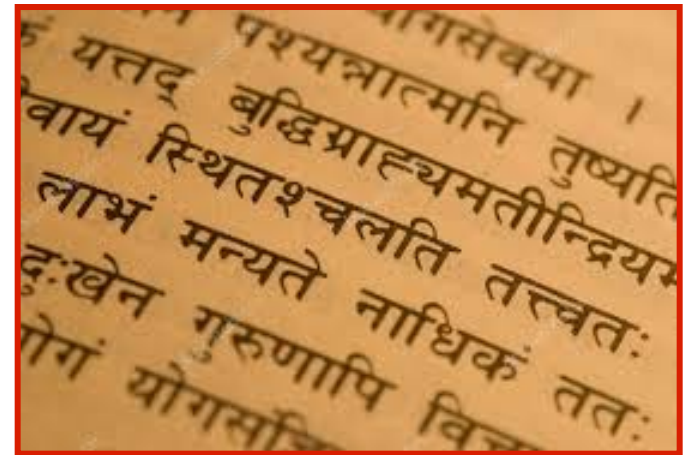 योगसेवया ।
पश्यन्नात्मनि तुष्यति
यत्तद् बुद्धिग्राह्यमतीन्द्रियम
वायं स्थितश्चलति तत्त्वतः
लाभं मन्यते नाधिकं ततः
दुःखेन गुरुणापि
योगसंज्ञि